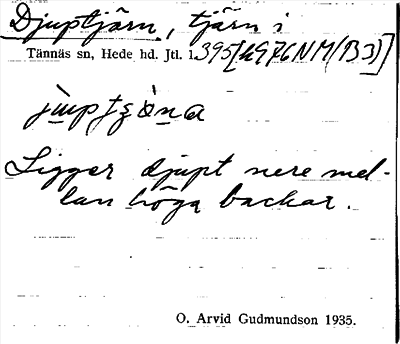 Djuptjärn, tjärn i
Tännäs sn, Hede hd. Jtl. l.395[2976NM(B3)]
Ligger djupt nere mel-
lan höga backar.
O. Arvid Gudmundson 1935.